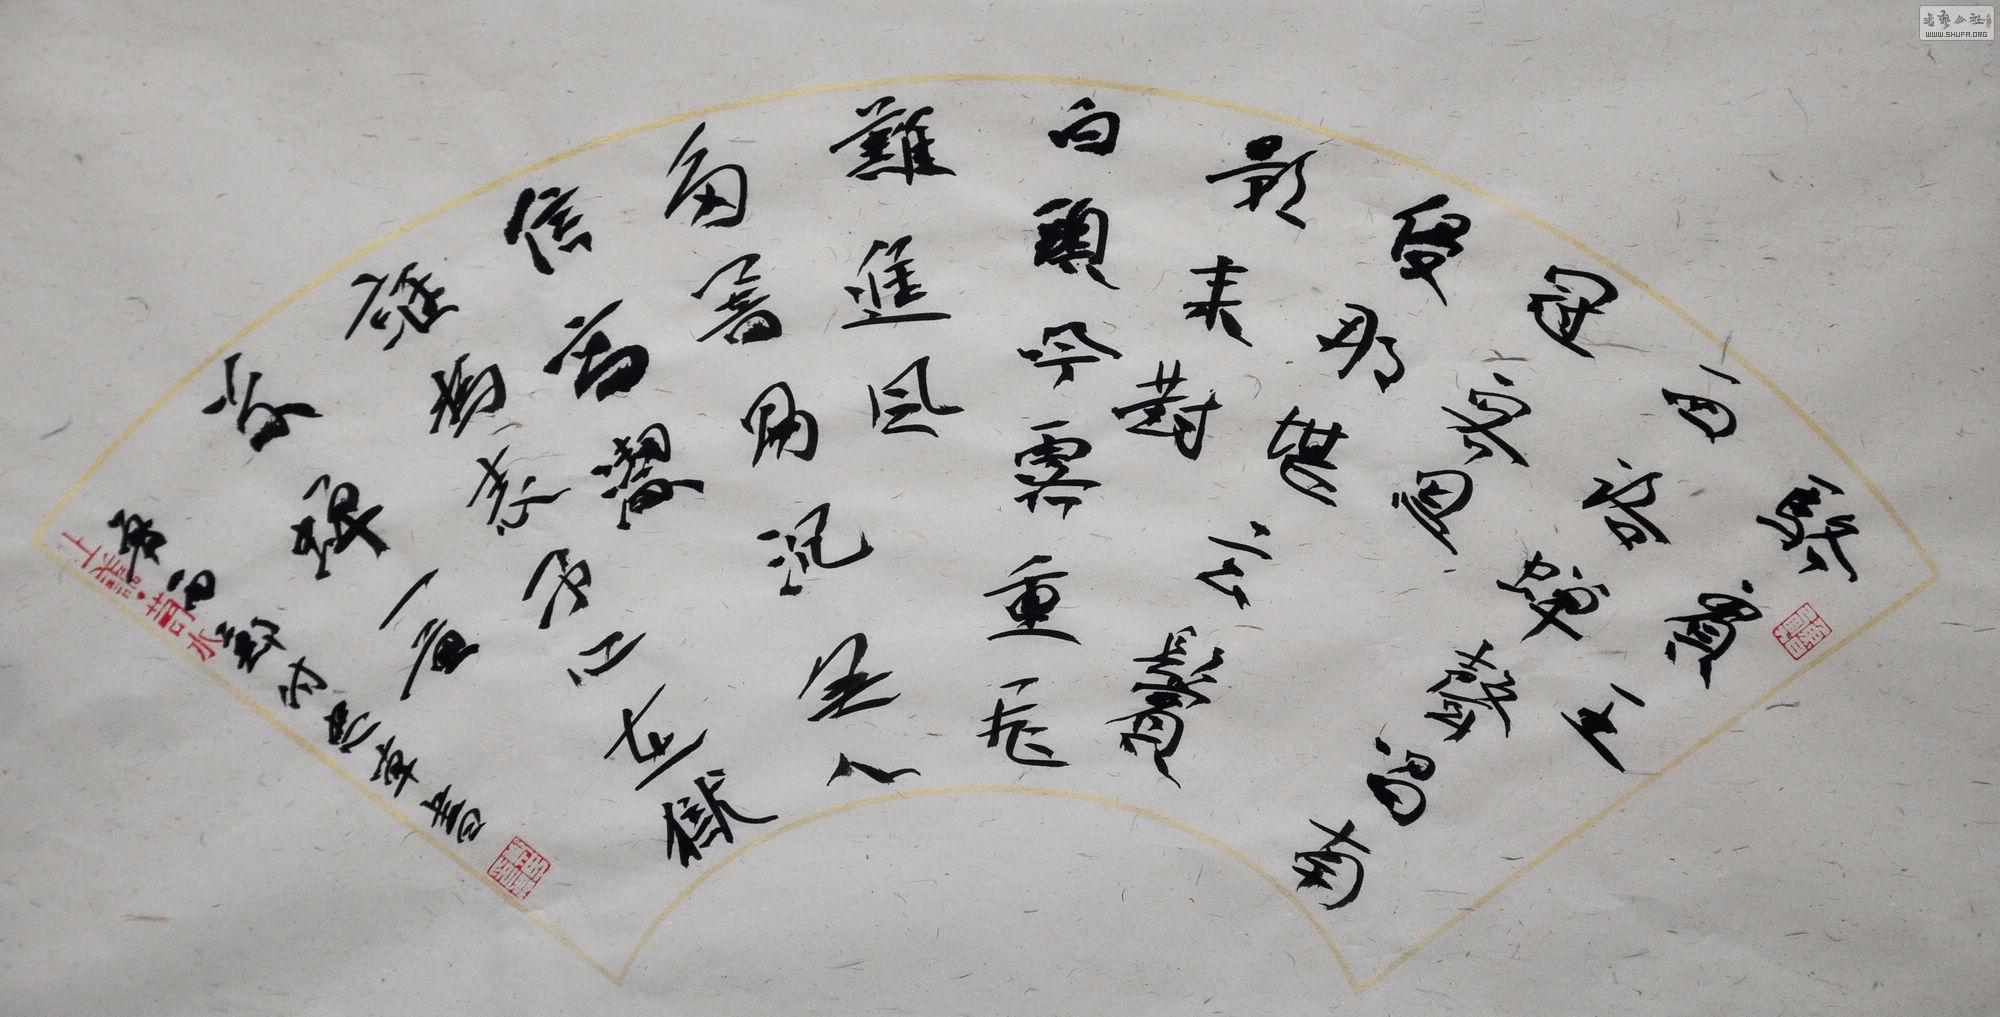 駱賓王
西陸蟬聲唱南
冠客思
侵那堪玄鬢
影來對
白頭吟露重飛
難進風
多響易沉無人
信高潔
誰為表予心在獄
詠蟬一首
書
書藝公社
WWW.SHUFA.ORG